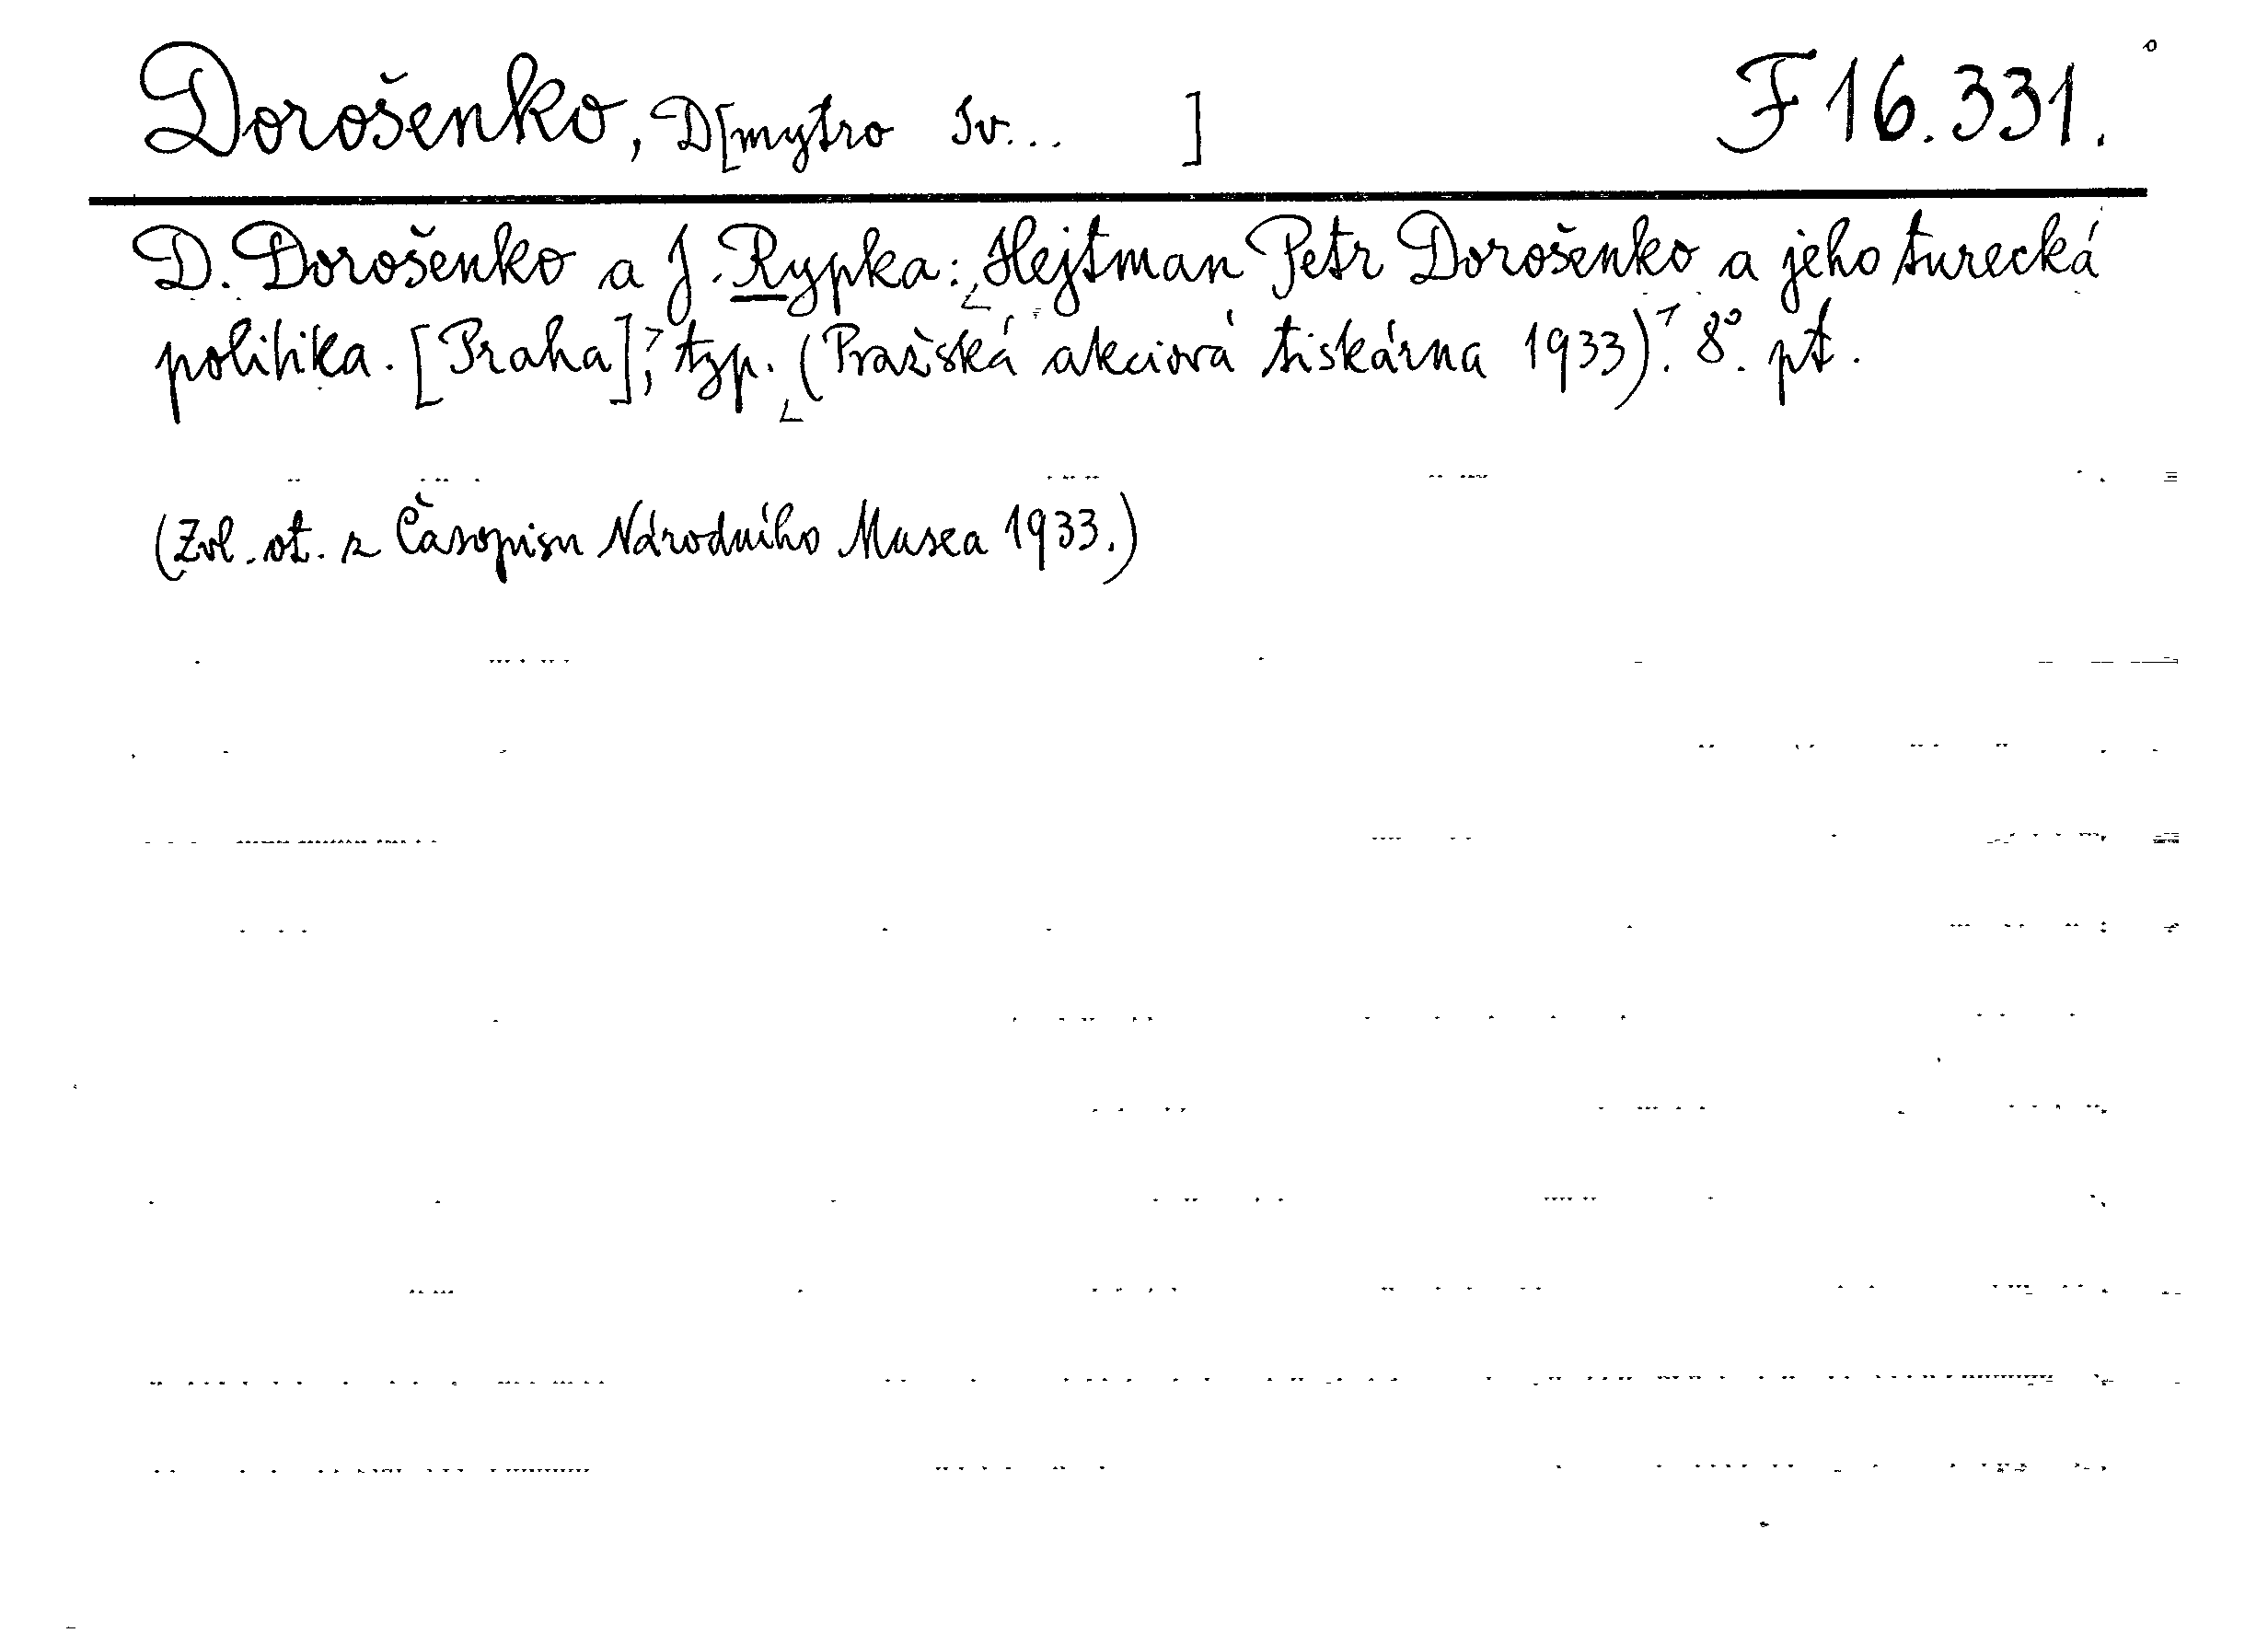 Dorošenko, D[mytro Iv... ] F 16.331.
D. Dorošenko a J. Rypka: Hejtman Petr Dorošenko a jeho turecká
politika. [Praha], typ. (Pražská akciová tiskárna 1933). 8°. pt.
(Zvl. ot. z Časopisu Národního Musea 1933.)